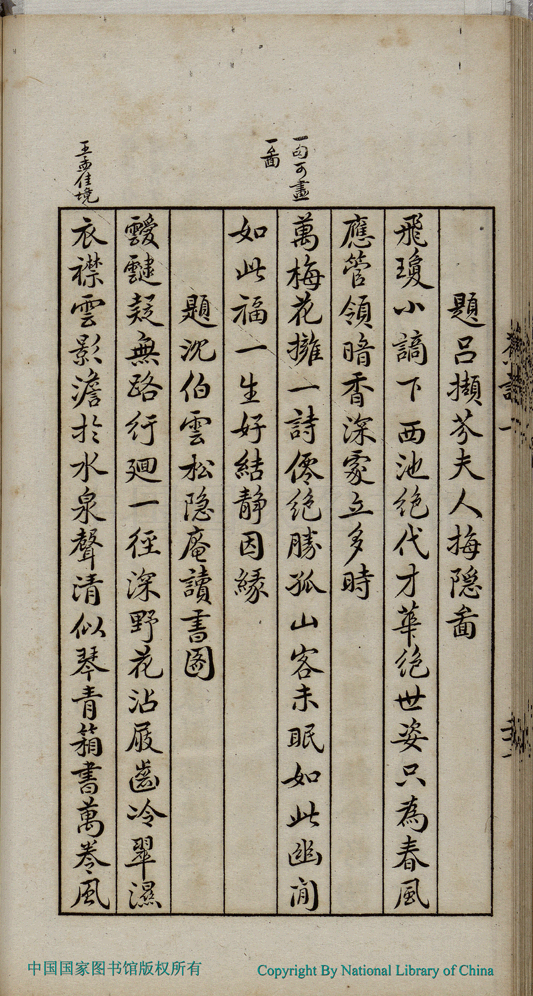 題呂擷芬夫人梅隱啚
飛瓊小謫下西池絶代才華絶世姿只為春風
應管領暗香深處立多時
一句可畫
一啚
萬梅花擁一詩僊絶勝孤山客未眠如此幽閒
如此福一生好結静因緣
題沈伯雲松隐庵讀書圖
靉靆疑無路行廻一徑深野花沾屐齒冷翠濕
王孟佳境
衣襟雲影澹於水泉聲清似琴青箱書萬卷風
中国国家图书馆版权所有
Copyright By National Library of China